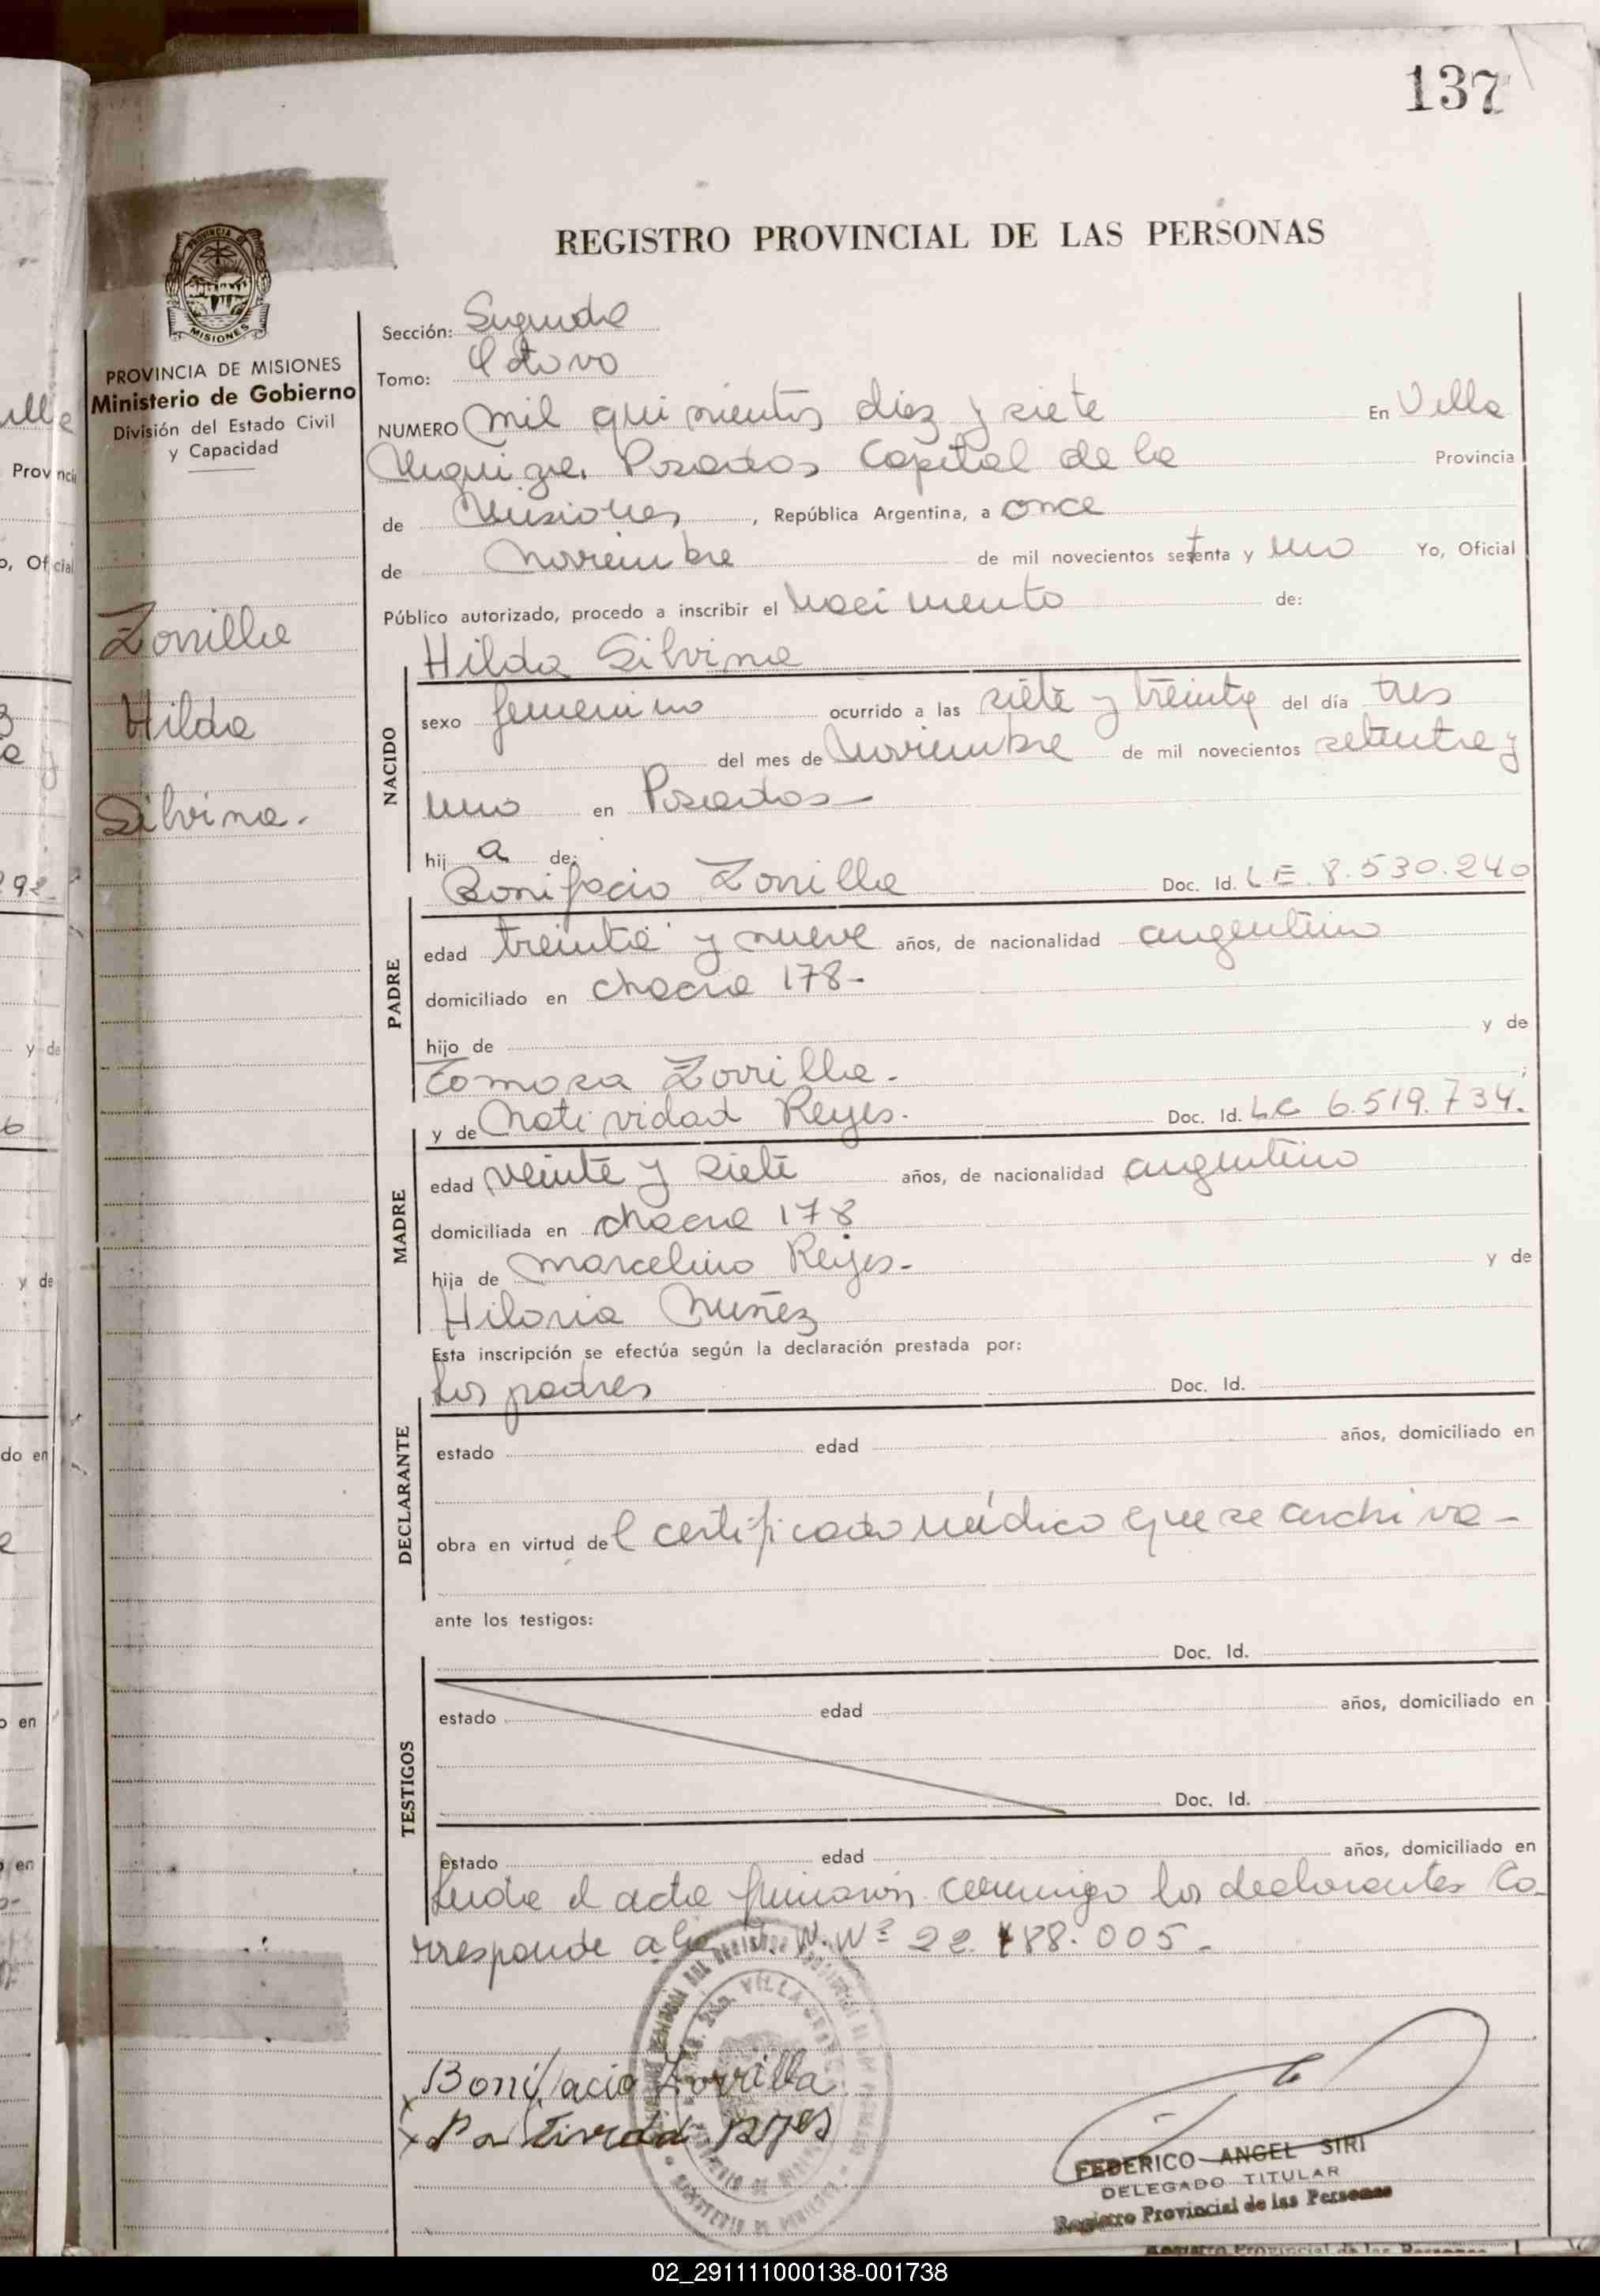 137
REGISTRO PROVINCIAL DE LAS PERSONAS
PROVINCIA DE MISIONES
Ministerio de Gobierno
División del Estado Civil
y Capacidad
Zorrilla
Hilda
Silvina.
Sección: Segunda
Tomo: Octavo
NUMERO mil quinientos diez y siete En Villa
Urquiza. Posadas Capital de la Provincia
de Misiones, República Argentina, a once
de noviembre de mil novecientos setenta y uno Yo, Oficial
Público autorizado, procedo a inscribir el nacimiento de:
Hilda Silvina
NACIDO
sexo femenino ocurrido a las siete y treinta del día tres
del mes de noviembre de mil novecientos setenta y
uno en Posadas
hij a de:
Bonifacio Zorrilla Doc. Id. LE. 8.530.240
PADRE
edad treinta y nueve años, de nacionalidad argentino
domiciliado en chacra 178-
hijo de y de
Tomasa Zorrilla. ;
y de Natividad Reyes. Doc. Id. LC 6.519.734.
MADRE
edad veinte y siete años, de nacionalidad argentino
domiciliada en chacra 178
hija de Marcelino Reyes- y de
Hilaria Nuñez
Esta inscripción se efectúa según la declaración prestada por:
los padres Doc. Id.
DECLARANTE
estado edad años, domiciliado en
obra en virtud del certificado médico que se archiva-
ante los testigos:
Doc. Id.
TESTIGOS
estado edad años, domiciliado en
Doc. Id.
estado edad años, domiciliado en
Leida el acta firmaron conmigo los declarantes Co-
rresponde a N. Nº 22.488.005-
Bonifacio Zorrilla
Reyes
FEDERICO ANGEL SIRI
DELEGADO TITULAR
Registro Provincial de las Personas
02_291111000138-001738